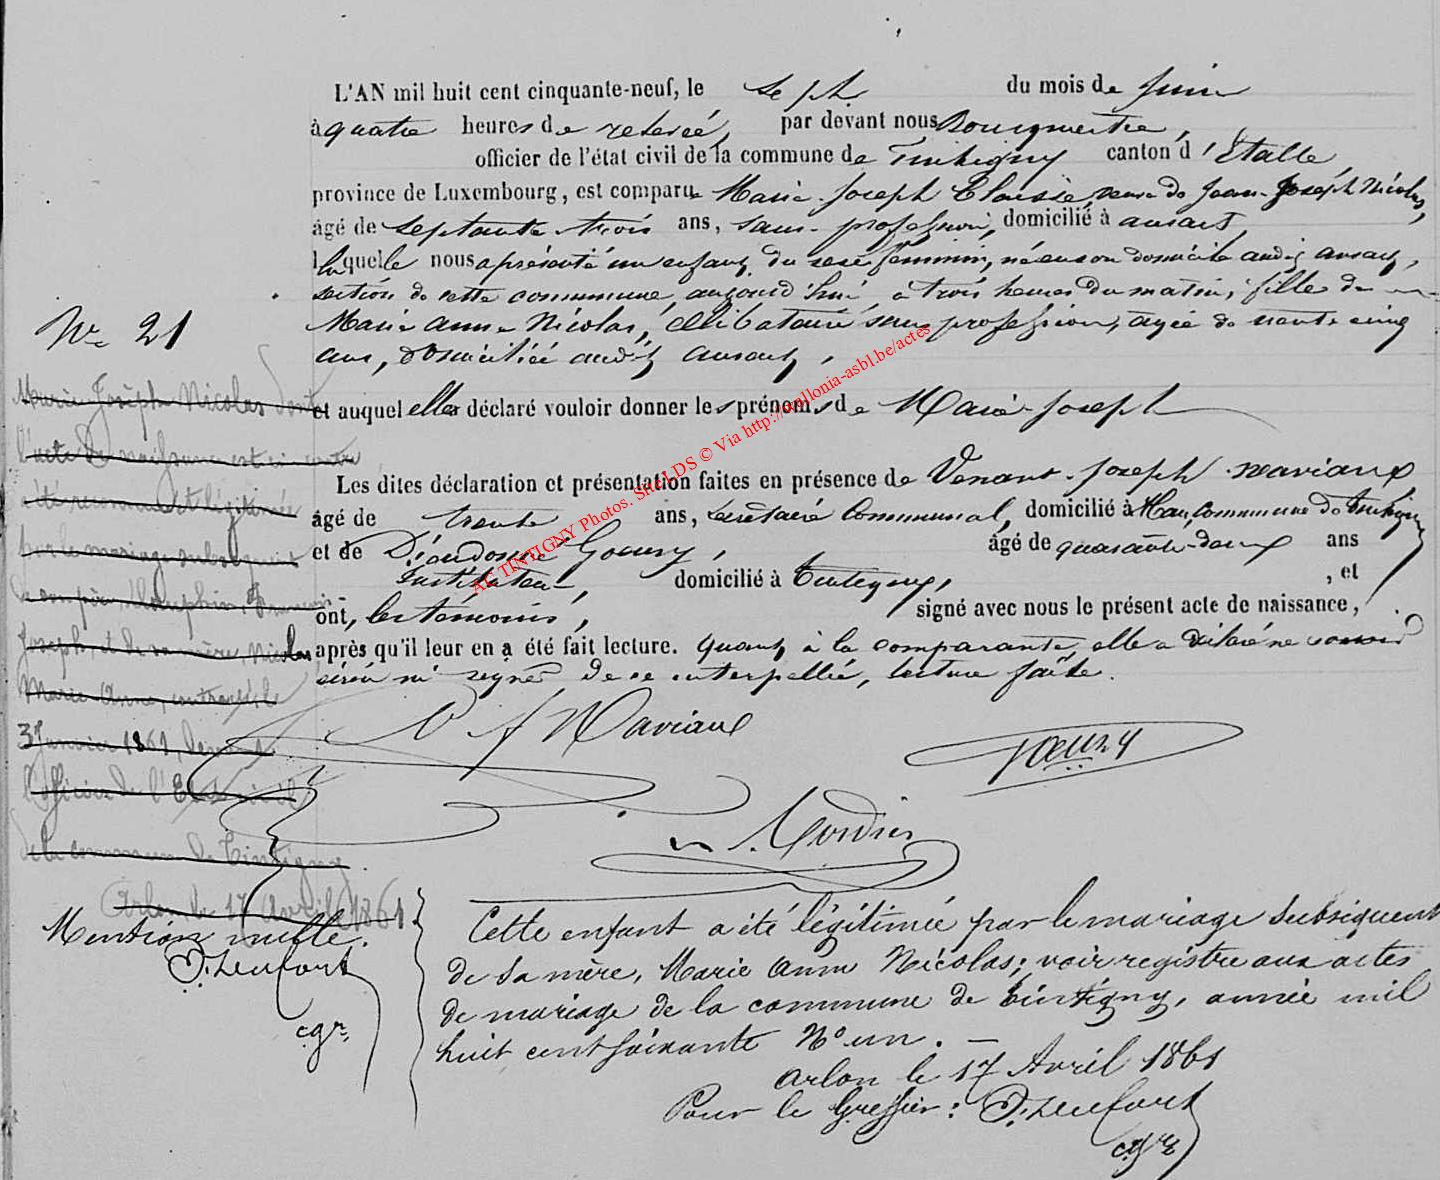 L'AN mil huit cent cinquante-neuf, le sept du mois de Juin
à quatre heures de relevée, par devant nous Bourgmestre,
officier de l'état civil de la commune de Tintigny canton d'Etalle
province de Luxembourg, est comparue Marie-Joseph veuve de Jean-Joseph Nicolas,
âgé de septante-trois ans, sans profession, domicilié à ansart,
laquelle nous a présenté un enfant du sexe féminin, né en son domicile audit ansart,
section de cette commune, aujourd'hui à trois heures du matin, fille de
Marie anne Nicolas, célibataire sans profession, agée de trente cinq
ans, domiciliée audit ansart,
et auquel elle a déclaré vouloir donner les prénoms de Marie-Joseph
Les dites déclaration et présentation faites en présence de Venant-Joseph Naviaux
âgé de trente ans, secrétaire communal, domicilié à Han, commune de tintigny
et de Dieudonné Goeury, âgé de quarante-deux ans
Instituteur, domicilié à tintigny, , et
ont, les témoins, signé avec nous le présent acte de naissance,
après qu'il leur en a été fait lecture. quant à la comparante, elle a déclaré ne savoir
écrire ni signer de ce interpellée, lecture faite.
V J Naviaux
Goeury
N° 21
Marie Joseph Nicolas dont
l'acte de naissance est ci-contre
a été reconnue et légitimée
par le mariage subséquent
de son père,
Joseph, et de sa mère, Nicolas
Marie Anne, contracté le
3 Janvier 1861, devant
l'officier de l'Etat civil
de la commune de Tintigny.
Arlon le 17 Avril 1861
Mention nulle.
cgr
Cette enfant a été légitimée par le mariage subséquent
de sa mère, Marie Anne Nicolas; voir registre aux actes
de mariage de la commune de Tintigny, année mil
huit cent soixante N° un. —
Arlon le 17 Avril 1861
Pour le Greffier:
cgr
AE TINTIGNY Photos. Site LDS © Via http://wallonia-asbl.be/actes